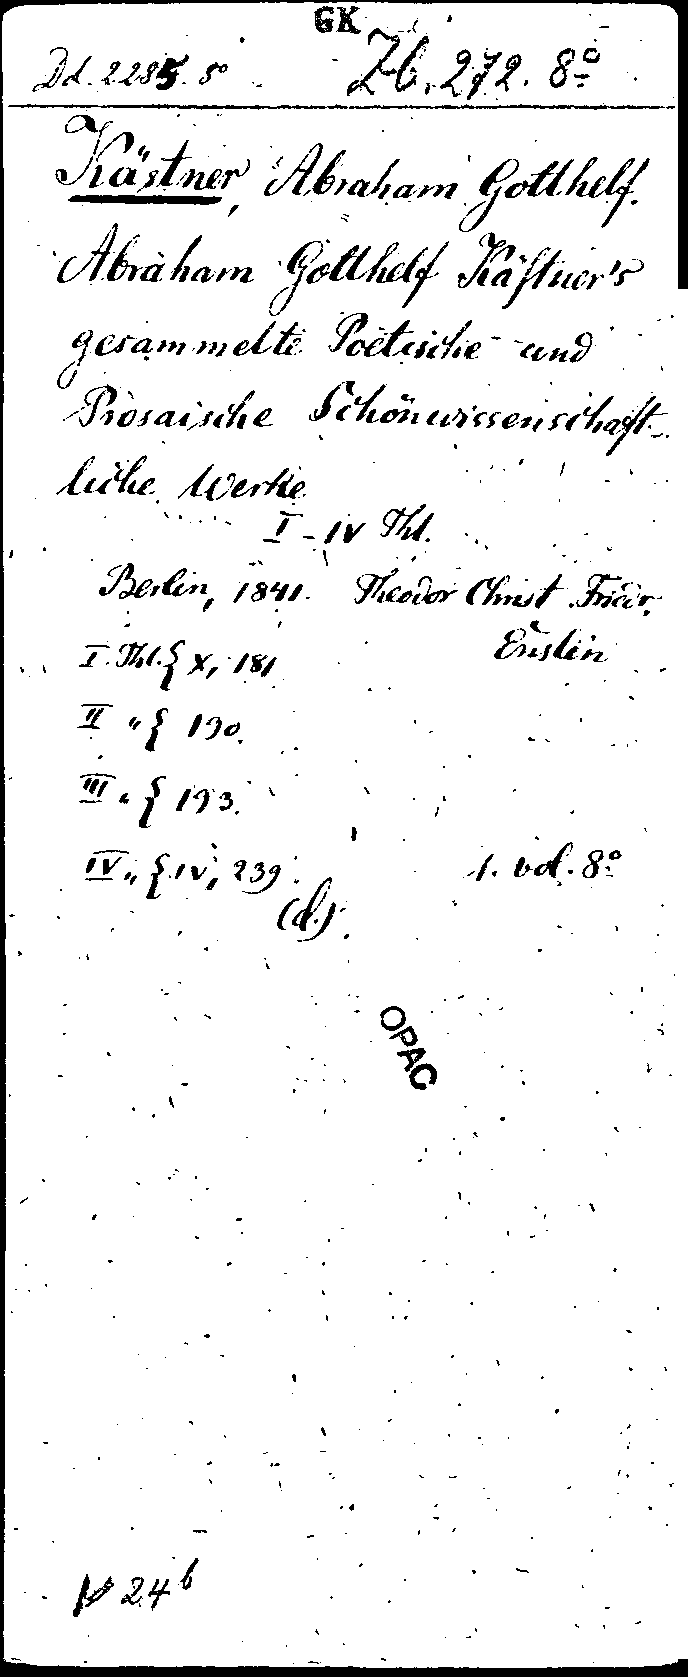 GK
Dd. 2285. 8° Zb. 272. 8°
Kästner, Abraham Gotthelf.
Abraham Gotthelf Käſtner's
gesammelte Poetische und
Prosaische Schönwissenschaft-
liche Werke
I - IV Thl.
Berlin, 1841. Theodor Christ. Friedr.
Enslin
I. Thl. { X, 181
II „ { 190.
III „ { 193.
IV „ { IV, 239. 1. vol. 8°
(d.)
OPAC
24 b